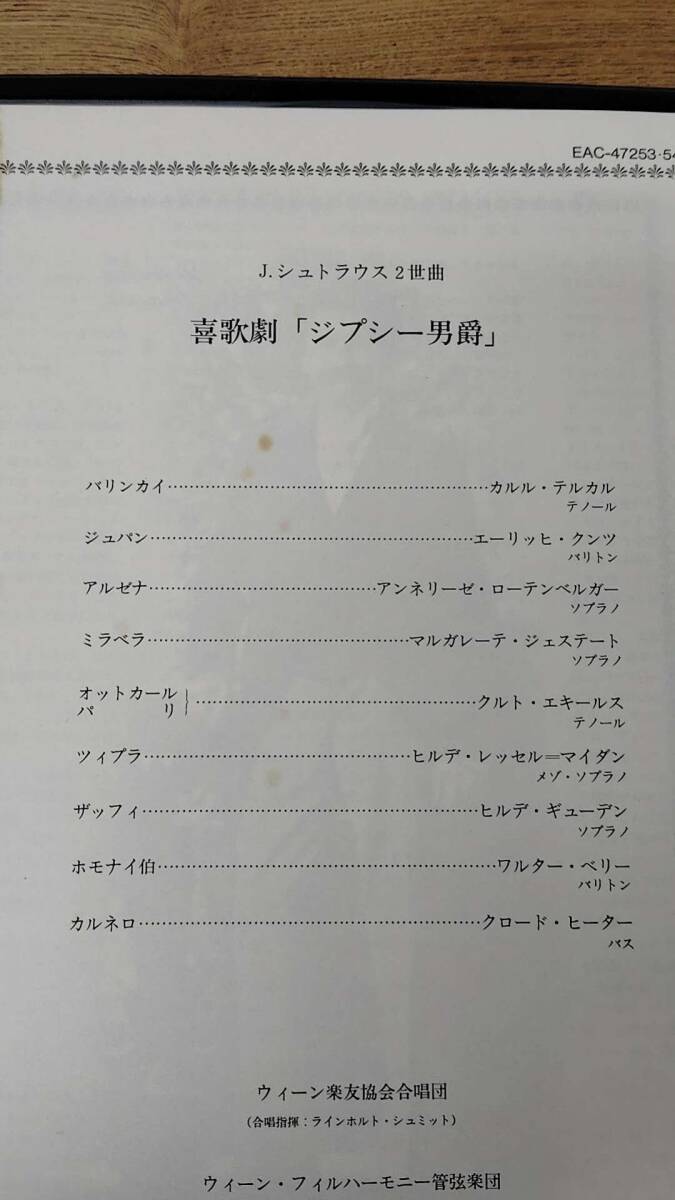 EAC-47253·54
J.シュトラウス2世曲
喜歌劇「ジプシー男爵」
バリンカイ……カルル・テルカル
テノール
ジュパン……エーリッヒ・クンツ
バリトン
アルゼナ……アンネリーゼ・ローテンベルガー
ソプラノ
ミラベラ……マルガレーテ・ジェステート
ソプラノ
オットカール
パリ}……クルト・エキールス
テノール
ツィプラ……ヒルデ・レッセル=マイダン
メゾ・ソプラノ
ザッフィ……ヒルデ・ギューデン
ソプラノ
ホモナイ伯……ワルター・ベリー
バリトン
カルネロ……クロード・ヒーター
バス
ウィーン楽友協会合唱団
(合唱指揮:ラインホルト・シュミット)
ウィーン・フィルハーモニー管弦楽団